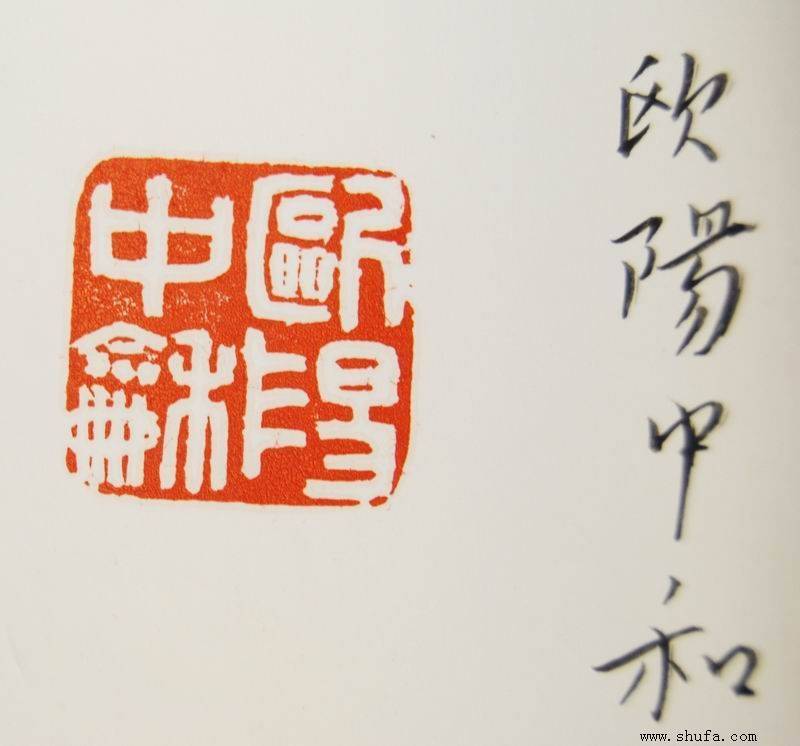 欧陽中和
歐陽
中龢
www.shufa.com